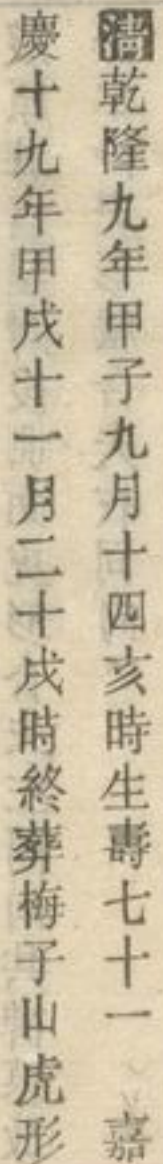 清乾隆九年甲子九月十四亥時生壽七十一　嘉
慶十九年甲戌十一月二十戌時終葬梅子山虎形